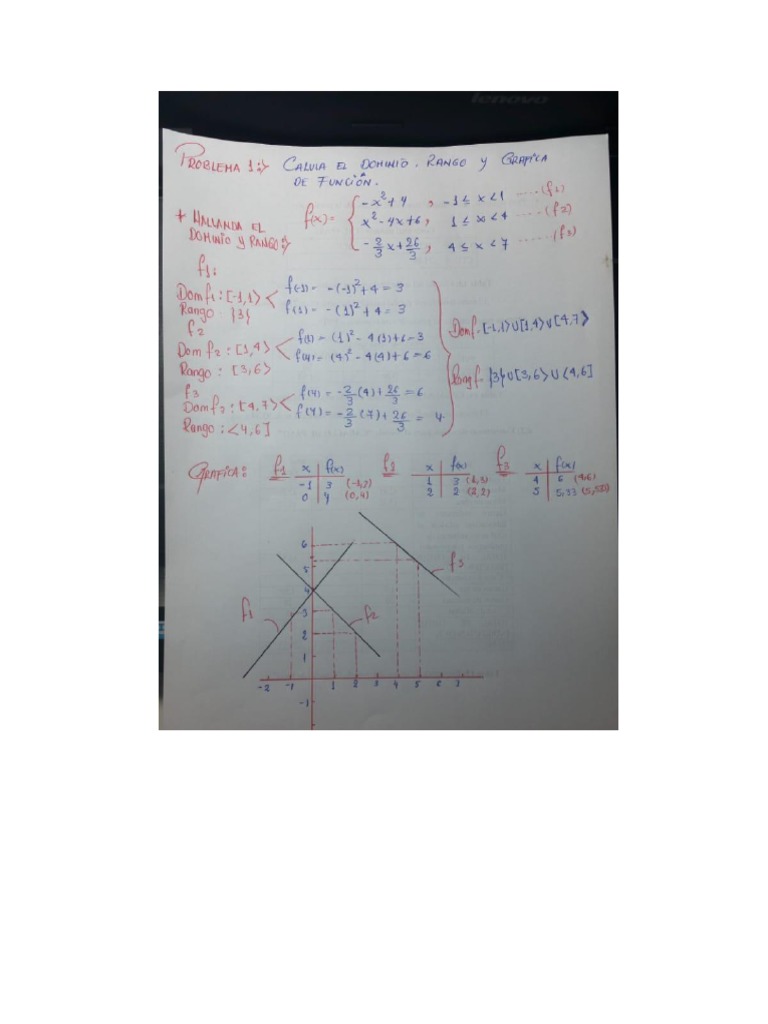 lenovo
PROBLEMA 1:> CALCULA EL DOMINIO. RANGO Y GRAFICA
DE FUNCIÓN.
f(x) = { -x²+4 , -1 ≤ x < 1 ······ (f1)
x²-4x+6, 1 ≤ x < 4 ······ (f2)
-2/3 x + 26/3 , 4 ≤ x < 7 ······ (f3)
+ HALLANDO EL
DOMINIO Y RANGO:>
f1:
Dom f1: [-1,1> < f(-1) = -(-1)²+4 = 3
Rango : {3} f(1) = -(1)²+4 = 3
f2
Dom f2 : [1,4> < f(1) = (1)² - 4(1)+6 = 3
f(4) = (4)² - 4(4)+6 = 6
Rango : [3,6>
f3
Dom f3 : [4,7> < f(4) = -2/3 (4) + 26/3 = 6
f(7) = -2/3 (7) + 26/3 = 4
Rango : <4,6]
Dom f = [-1,1>U[1,4>U[4,7>
Rang f = {3}U[3,6>U<4,6]
GRAFICA: f1 x f(x) f2 x f(x) f3 x f(x)
-1 3 1 3 (1,3) 4 6 (4,6)
0 4 (0,4) 2 2 (2,2) 5 5,33
6
5
4
3
2
1
-1
f1
f2
f3
-2 -1 1 2 3 4 5 6 7